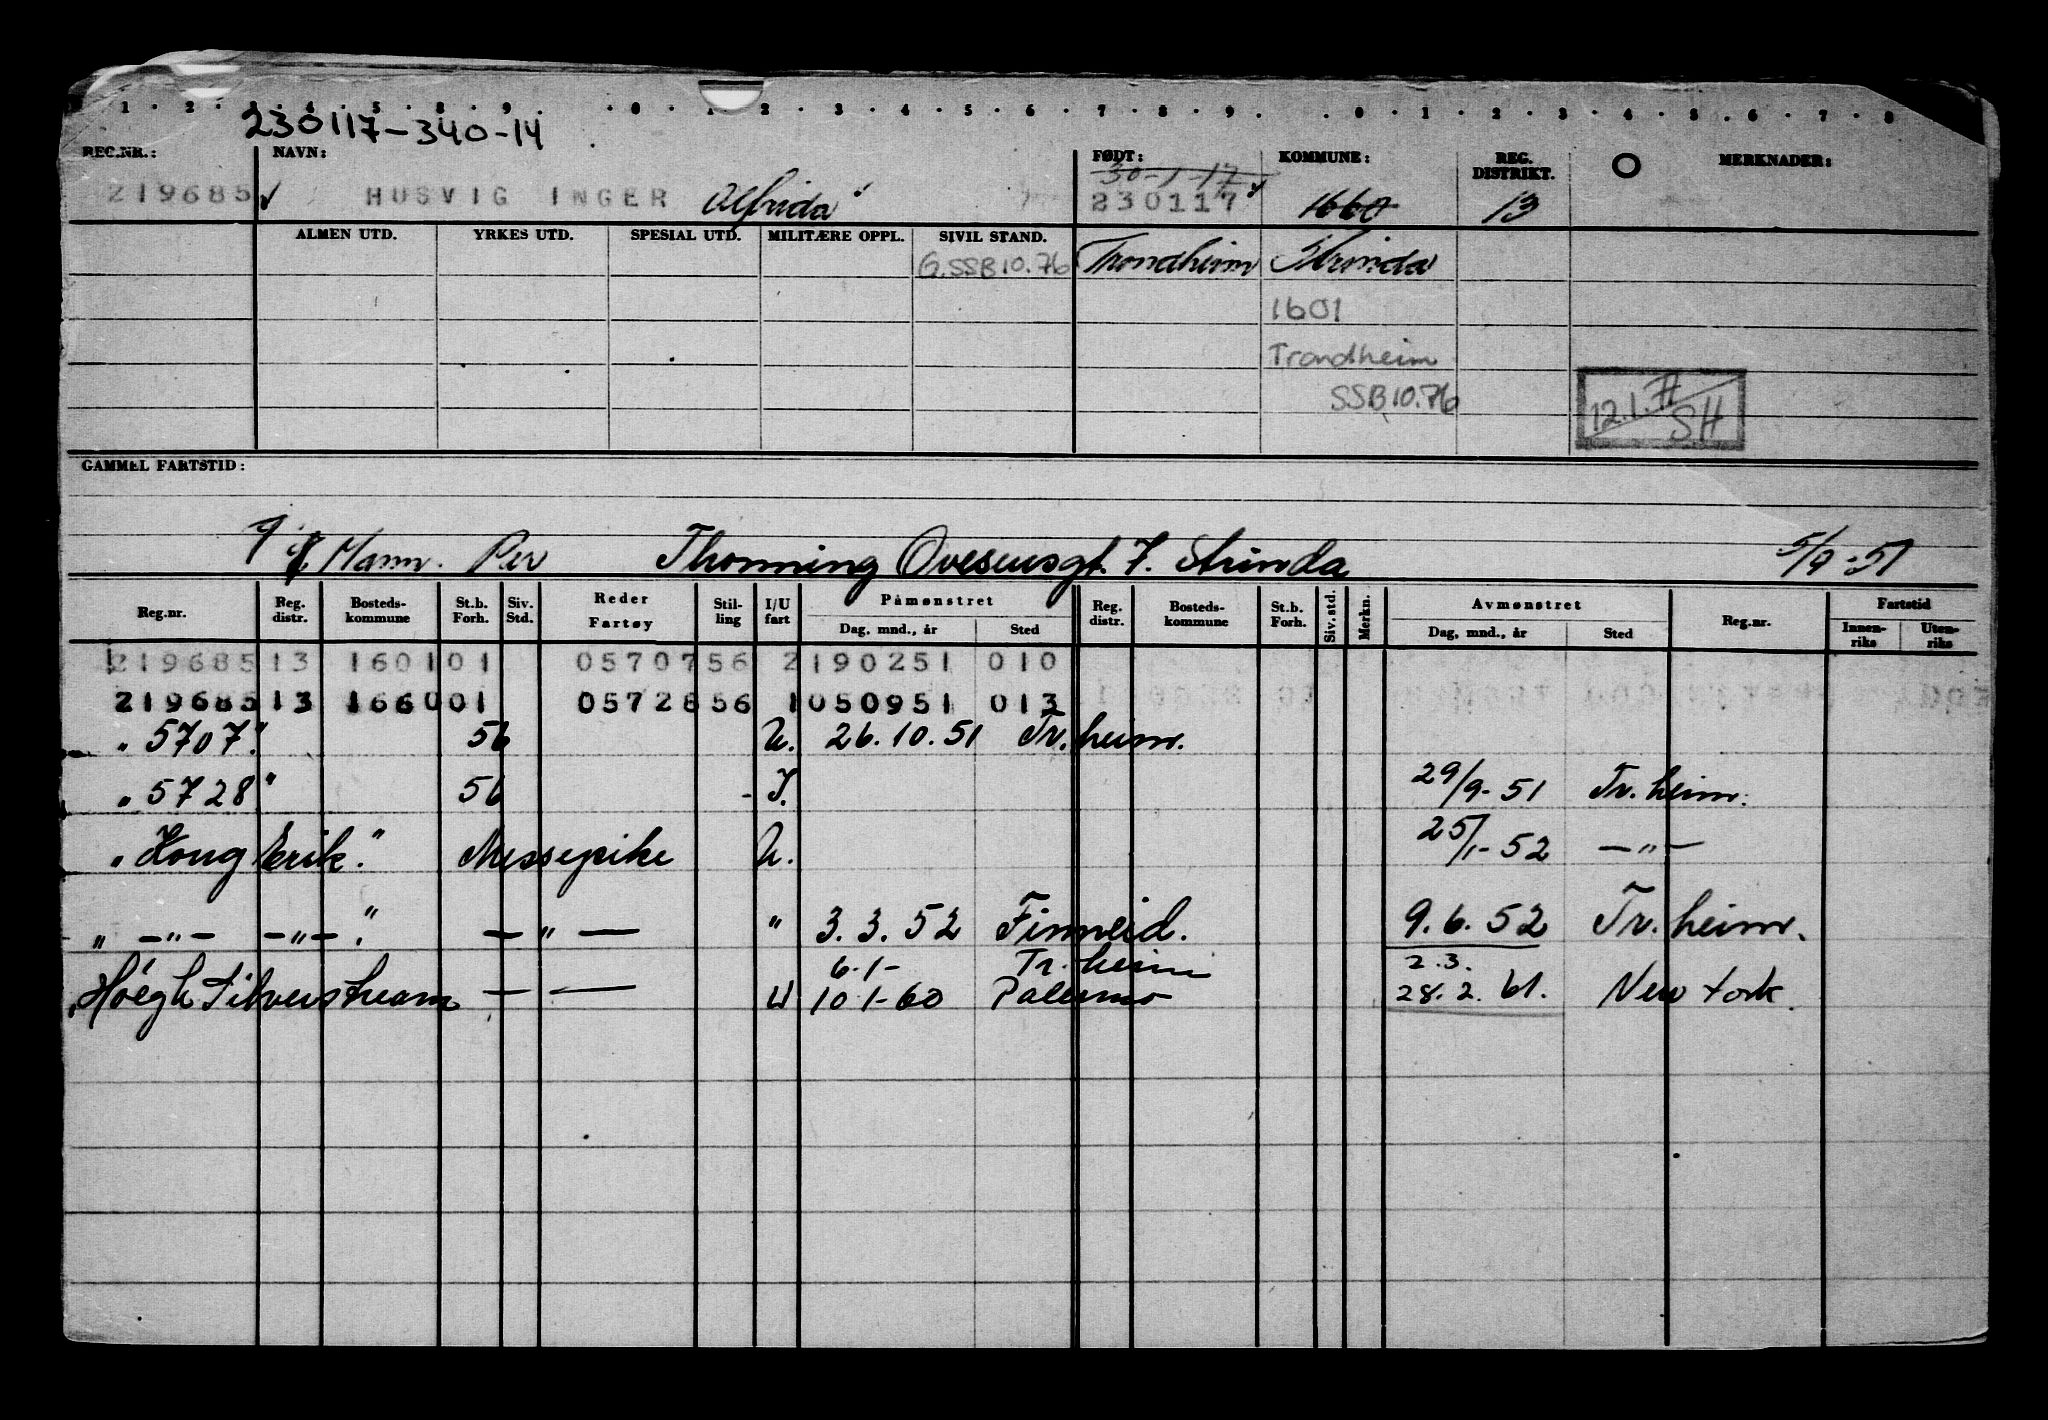 1 · 2 · 3 · 4 · 5 · 8 · 9 · · 0 · 1 · 2 · 3 · 4 · 5 · 6 · 7 · 8 · 9 · · 0 · 1 · 2 · 3 · 4 · 5 · 6 · 7 · 8
230117-340-14
REG.NR.: NAVN: FØDT: KOMMUNE: REG. DISTRIKT. O MERKNADER:
30-1-17
219685 HUSVIG INGER Alfrida 230117 1660 13
ALMEN UTD. YRKES UTD. SPESIAL UTD. MILITÆRE OPPL. SIVIL STAND.
G.SSB10.76 Trondheim Strinda
1601
Trondheim
SSB10.76
12.1.77 SH
GAMMEL FARTSTID:
Mann. Per Thonning Owesensgt. 7. Strinda 5/9-51
Reg.nr. Reg. distr. Bosteds-kommune St.b. Forh. Siv. Std. Reder Fartøy Stil-ling I/U fart Påmønstret Reg. distr. Bosteds-kommune St.b. Forh. Siv. std. Merkn. Avmønstret Reg.nr. Fartstid
Dag, mnd., år Sted Dag, mnd., år Sted Innen-riks Uten-riks
219685 13 160101 0570756 2190251 010
219685 13 166001 0572856 1050951 013
"5707" 56 U. 26.10.51 Tr.heim.
"5728" 56 - I. 29/9-51 Tr.heim.
"Kong Erik." Messepike U. 25/1-52 —"—
" —"— —"— " —"— " 3.3.52 Finneid. 9.6.52 Tr.heim.
6.1- Tr.heim 2.3.
Höegh Silverstream — — U 10.1-60 Palermo 28.2.61. New York.